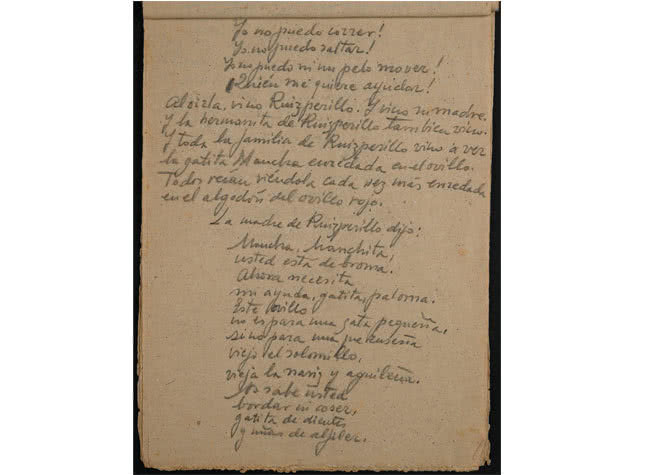 Yo no puedo correr!
Yo no puedo saltar!
Yo no puedo ni un pelo mover!
¡Quién me quiere ayudar!
Al oirla, vino Ruizperillo. Y vino su madre.
Y la hermanita de Ruizperillo tambien vino.
Y toda la familia de Ruizperillo vino a ver
la gatita Mancha enredada en el ovillo.
Todos reían viéndola cada vez mas enredada
en el algodón del ovillo rojo.
La madre de Ruizperillo dijo:
Mancha, Manchita,
usted está de broma.
Ahora necesita
mi ayuda, gatita, paloma.
Este ovillo
no es para una gata pequeña,
sino para una
viejo el solomillo,
vieja la nariz y aguileña.
No sabe usted
bordar ni coser,
gatita de dientes
y uñas de alfiler.